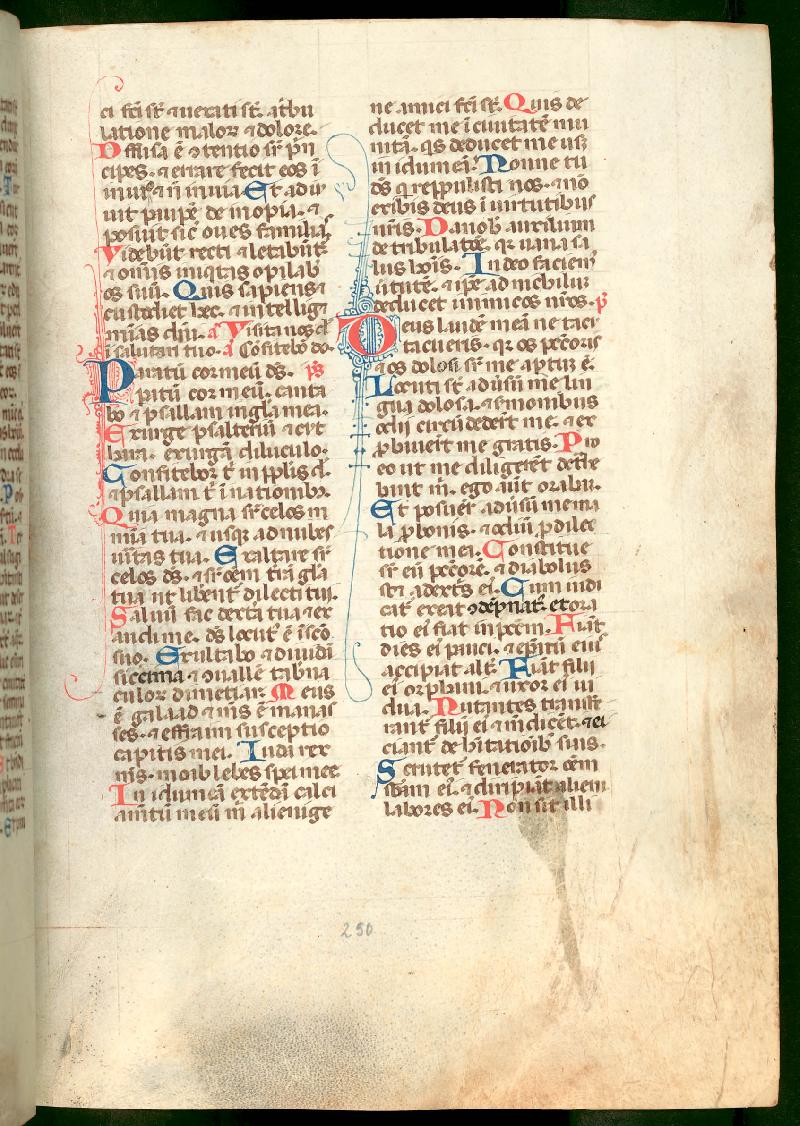 ci sc̄i sr̄ ⁊ uexati sr̄. a tribu
latione maloꝝ ⁊ dolore.
Effusa ē ꝯtentio sr̄ p̄n
cipes. ⁊ errare fecit eos ī
inuio ⁊ n̄ in uia Et adiu
uit pauꝑē de inopia. ⁊
posuit sic oues familias
Videbūt recti ⁊ letabūt᷑
⁊ omīs iniq̄tas opilab
os suū. Quis sapiens ⁊
custodiet hec. ⁊ intelligꝫ
mīas dn̄i. a Visita nos d
ī salutari tuo. a Cōfitebō do.
Paratū cor meū ds̄. ps
paratū cor meū. canta
bo ⁊ psallam in gl̄a mea.
Exurge psalteriū ⁊ cyt
hara. exurgā diluculo.
Confitebor t̄ in pplis d.
⁊ psallam t̄ ī nationibꝫ.
Quia magna sr̄ celos m
mīa tua. ⁊ usqꝫ ad nubes
uītas tua. Exaltare sr̄
celos ds̄. ⁊ sr̄ oēm t̄rā gl̄a
tua ut libent᷑ dilecti tui.
Saluū fac dext̄a tua ⁊ ex
audi me. ds̄ locut᷑ ē ī scō
suo. Exultabo ⁊ diuidā
siccima ⁊ ꝯuallē tab̄na
culoꝝ dimetiar. Meus
ē galaad ⁊ m̄s ē manas
ses. ⁊ effraim susceptio
capitis mei. Iuda rex
m̄s. moab lebes spei mee
In idumeā extēdā calci
amtū meū m̄ alienige
ne amici fc̄i sr̄. Quis de
ducet me ī ciuitatē mu
nitā. qs deducet me usqꝫ
in idumeā. Nonne tu
ds̄ q reppulisti nos. ⁊ nō
exibis deus ī uirtutibus
nr̄is. Da nob auxilium
de tribulatōe. qꝛ uana sa
lus hoīs. In deo faciemꝰ
uītutē. ⁊ ip̄e ad nichilum
deducet inimicos nr̄os. p
Deus laudē meā ne tacu
tacueris. qꝛ os pec̄toris
⁊ os dolosi sr̄ me aptū ē.
Locuti st̄ adūsū me lin
gua dolosa. ⁊ s̄monibus
odii circūdedert̄ me. ⁊ ex
pugnauert̄ me gratis. Pro
eo ut me diligerēt det̄he
bant m̄. ego aut̄ orabam.
Et posuert̄ adūsū me ma
la ꝓ bonis. ⁊ odiū ꝓ dilec
tione mea. Constitue
sr̄ eū pec̄torē. ⁊ diabolus
stet a dextris ei. Cum iudi
cat᷑ exeat ꝯdēpnat᷑. et ora
tio ei fiat in pc̄cm. Fiant
dies ei pauci. ⁊ ep̄atū eiꝰ
accipiat alt᷑. Fiāt filii
ei orphani. ⁊ uxor ei ui
dua. Nutantes transfe
rant᷑ filii ei ⁊ mēdicēt. ⁊ ei
ciant᷑ de hītatōib suis.
Scrutet᷑ fenerator oēm
sbām ei. ⁊ diripiāt alieni
labores ei. Non sit illi
250